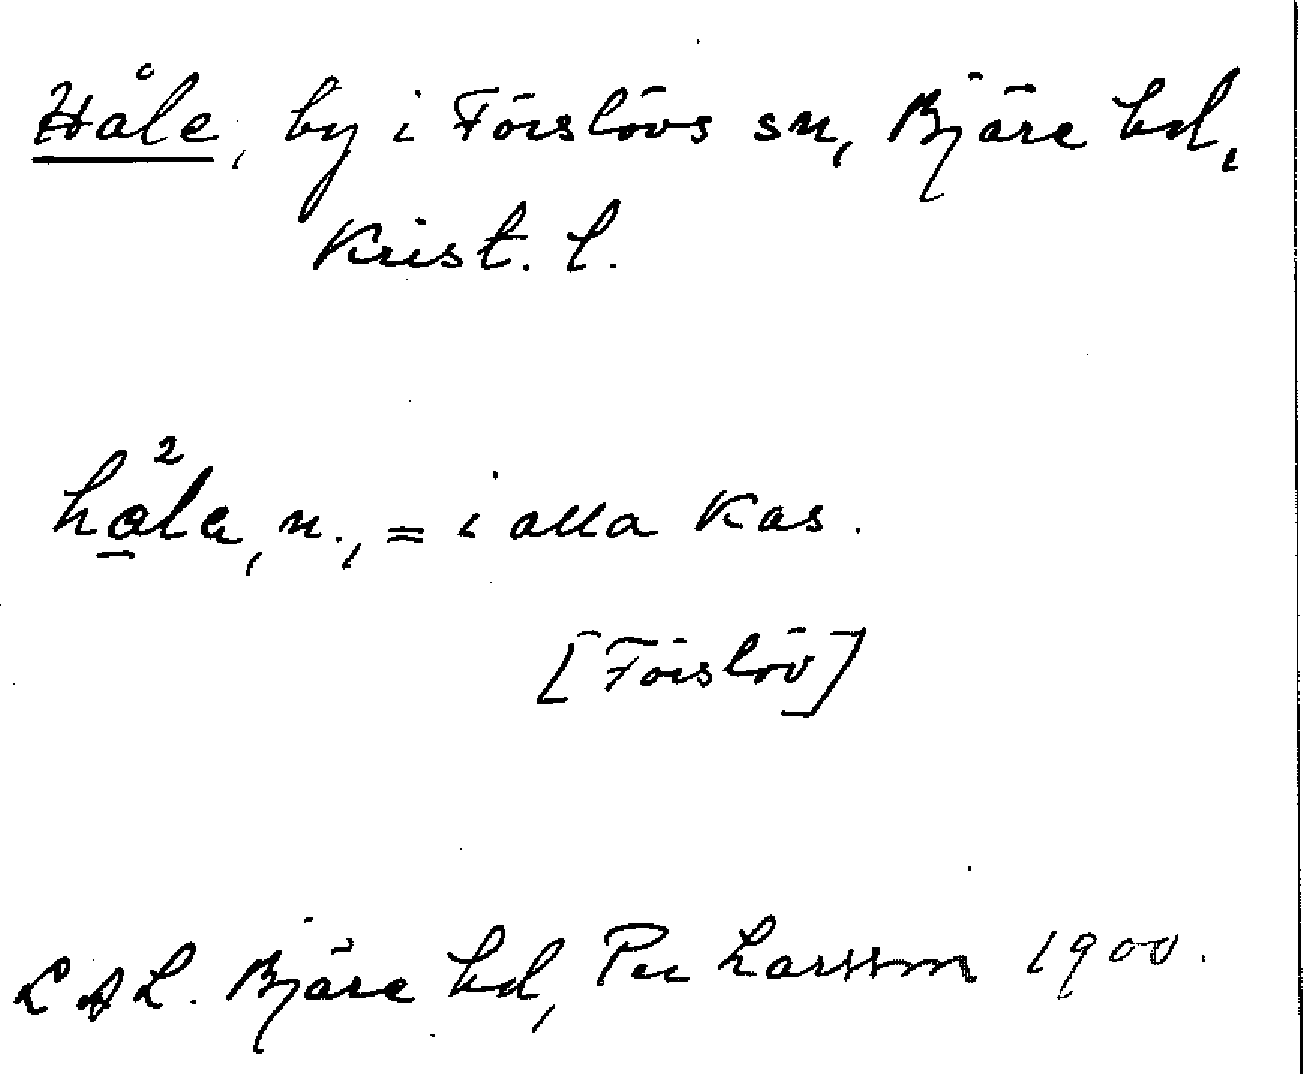 Håle, by i Förslövs sn, Bjäre hd,
Krist. l.
hå̠²la, n., = i alla kas.
[Förslöv]
LAL. Bjäre hd, Per Larsson 1900.